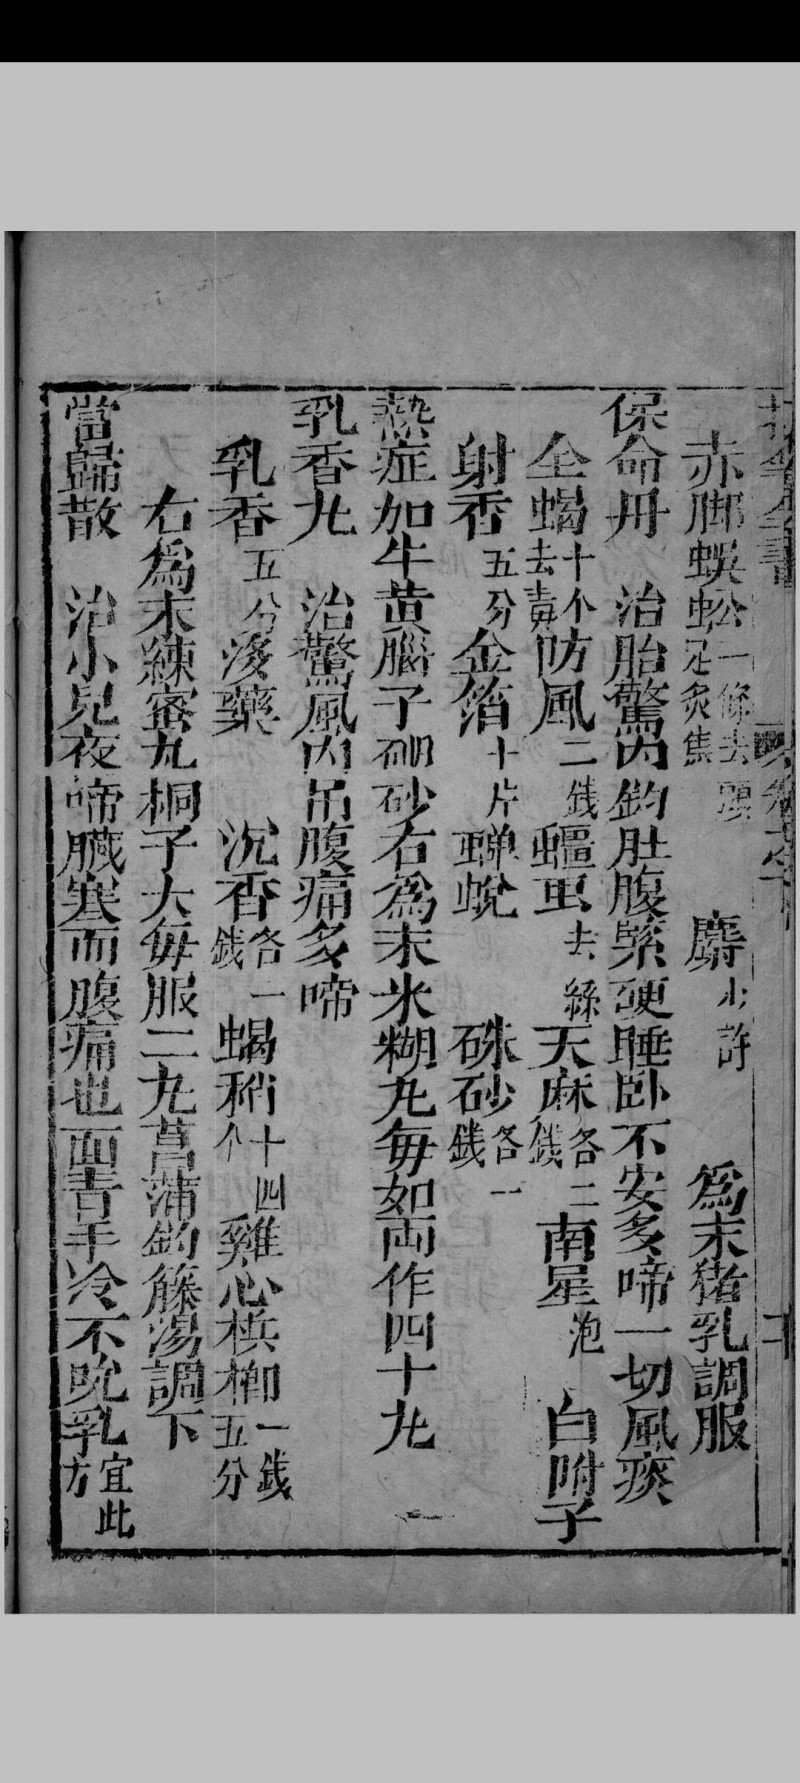 赤脚蜈蚣一條去頭足炙焦 麝少許 為末猪乳調服
保命丹 治胎驚內釣肚腹緊硬睡卧不安多啼一切風痰
全蝎十个去毒防風二錢 蠶虫去絲天麻各二錢 南星泡 白附子
射香五分金箔十片蟬蛻 硃砂各一錢
熱症加牛黄腦子硼砂右為末米糊丸每如両作四十九
乳香丸 治驚風內吊腹痛多啼
乳香五分沒藥 沉香各一錢蝎稍十四个雞心梹榔一錢五分
右為末練蜜丸桐子大每服二丸菖蒲釣籐湯調下
當歸散 治小兒夜啼臓寒而腹痛也面青手冷不吮乳宜此方